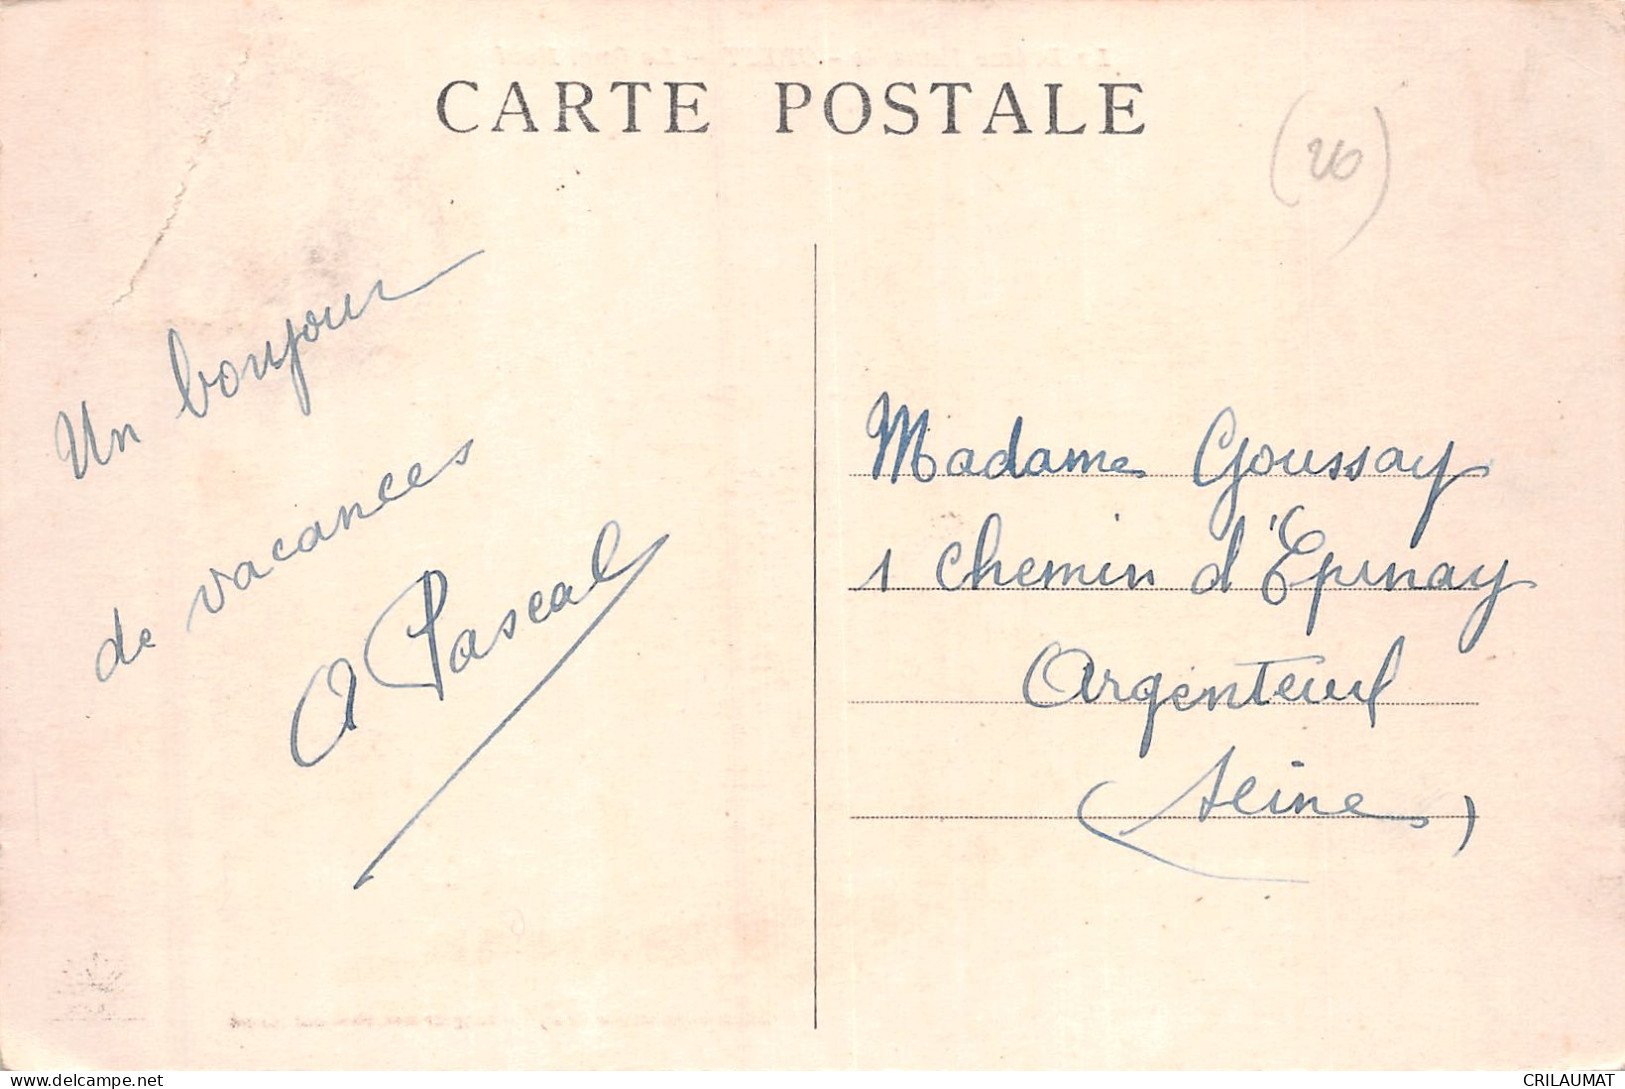 CARTE POSTALE
(26)
Un bonjour
de vacances
A Pascal
Madame Goussay
1 chemin d'Epinay
Argenteuil
(Seine)
CRILAUMAT